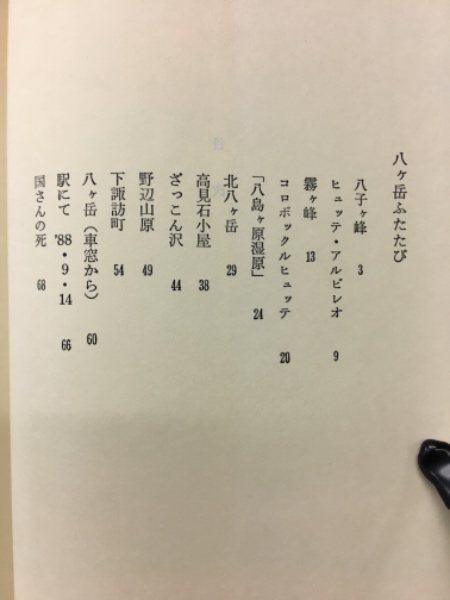 八ヶ岳ふたたび
八子ヶ峰 3
ヒュッテ・アルビレオ 9
霧ヶ峰 13
コロボックルヒュッテ 20
「八島ヶ原湿原」 24
北八ヶ岳 29
高見石小屋 38
ざっこん沢 44
野辺山原 49
下諏訪町 54
八ヶ岳（車窓から） 60
駅にて '88・9・14 66
国さんの死 68